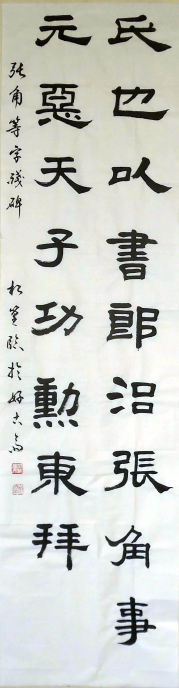 氏也以書郎治張角事
元惡天子功勳東拜
张角等字残碑 臨於好古斋